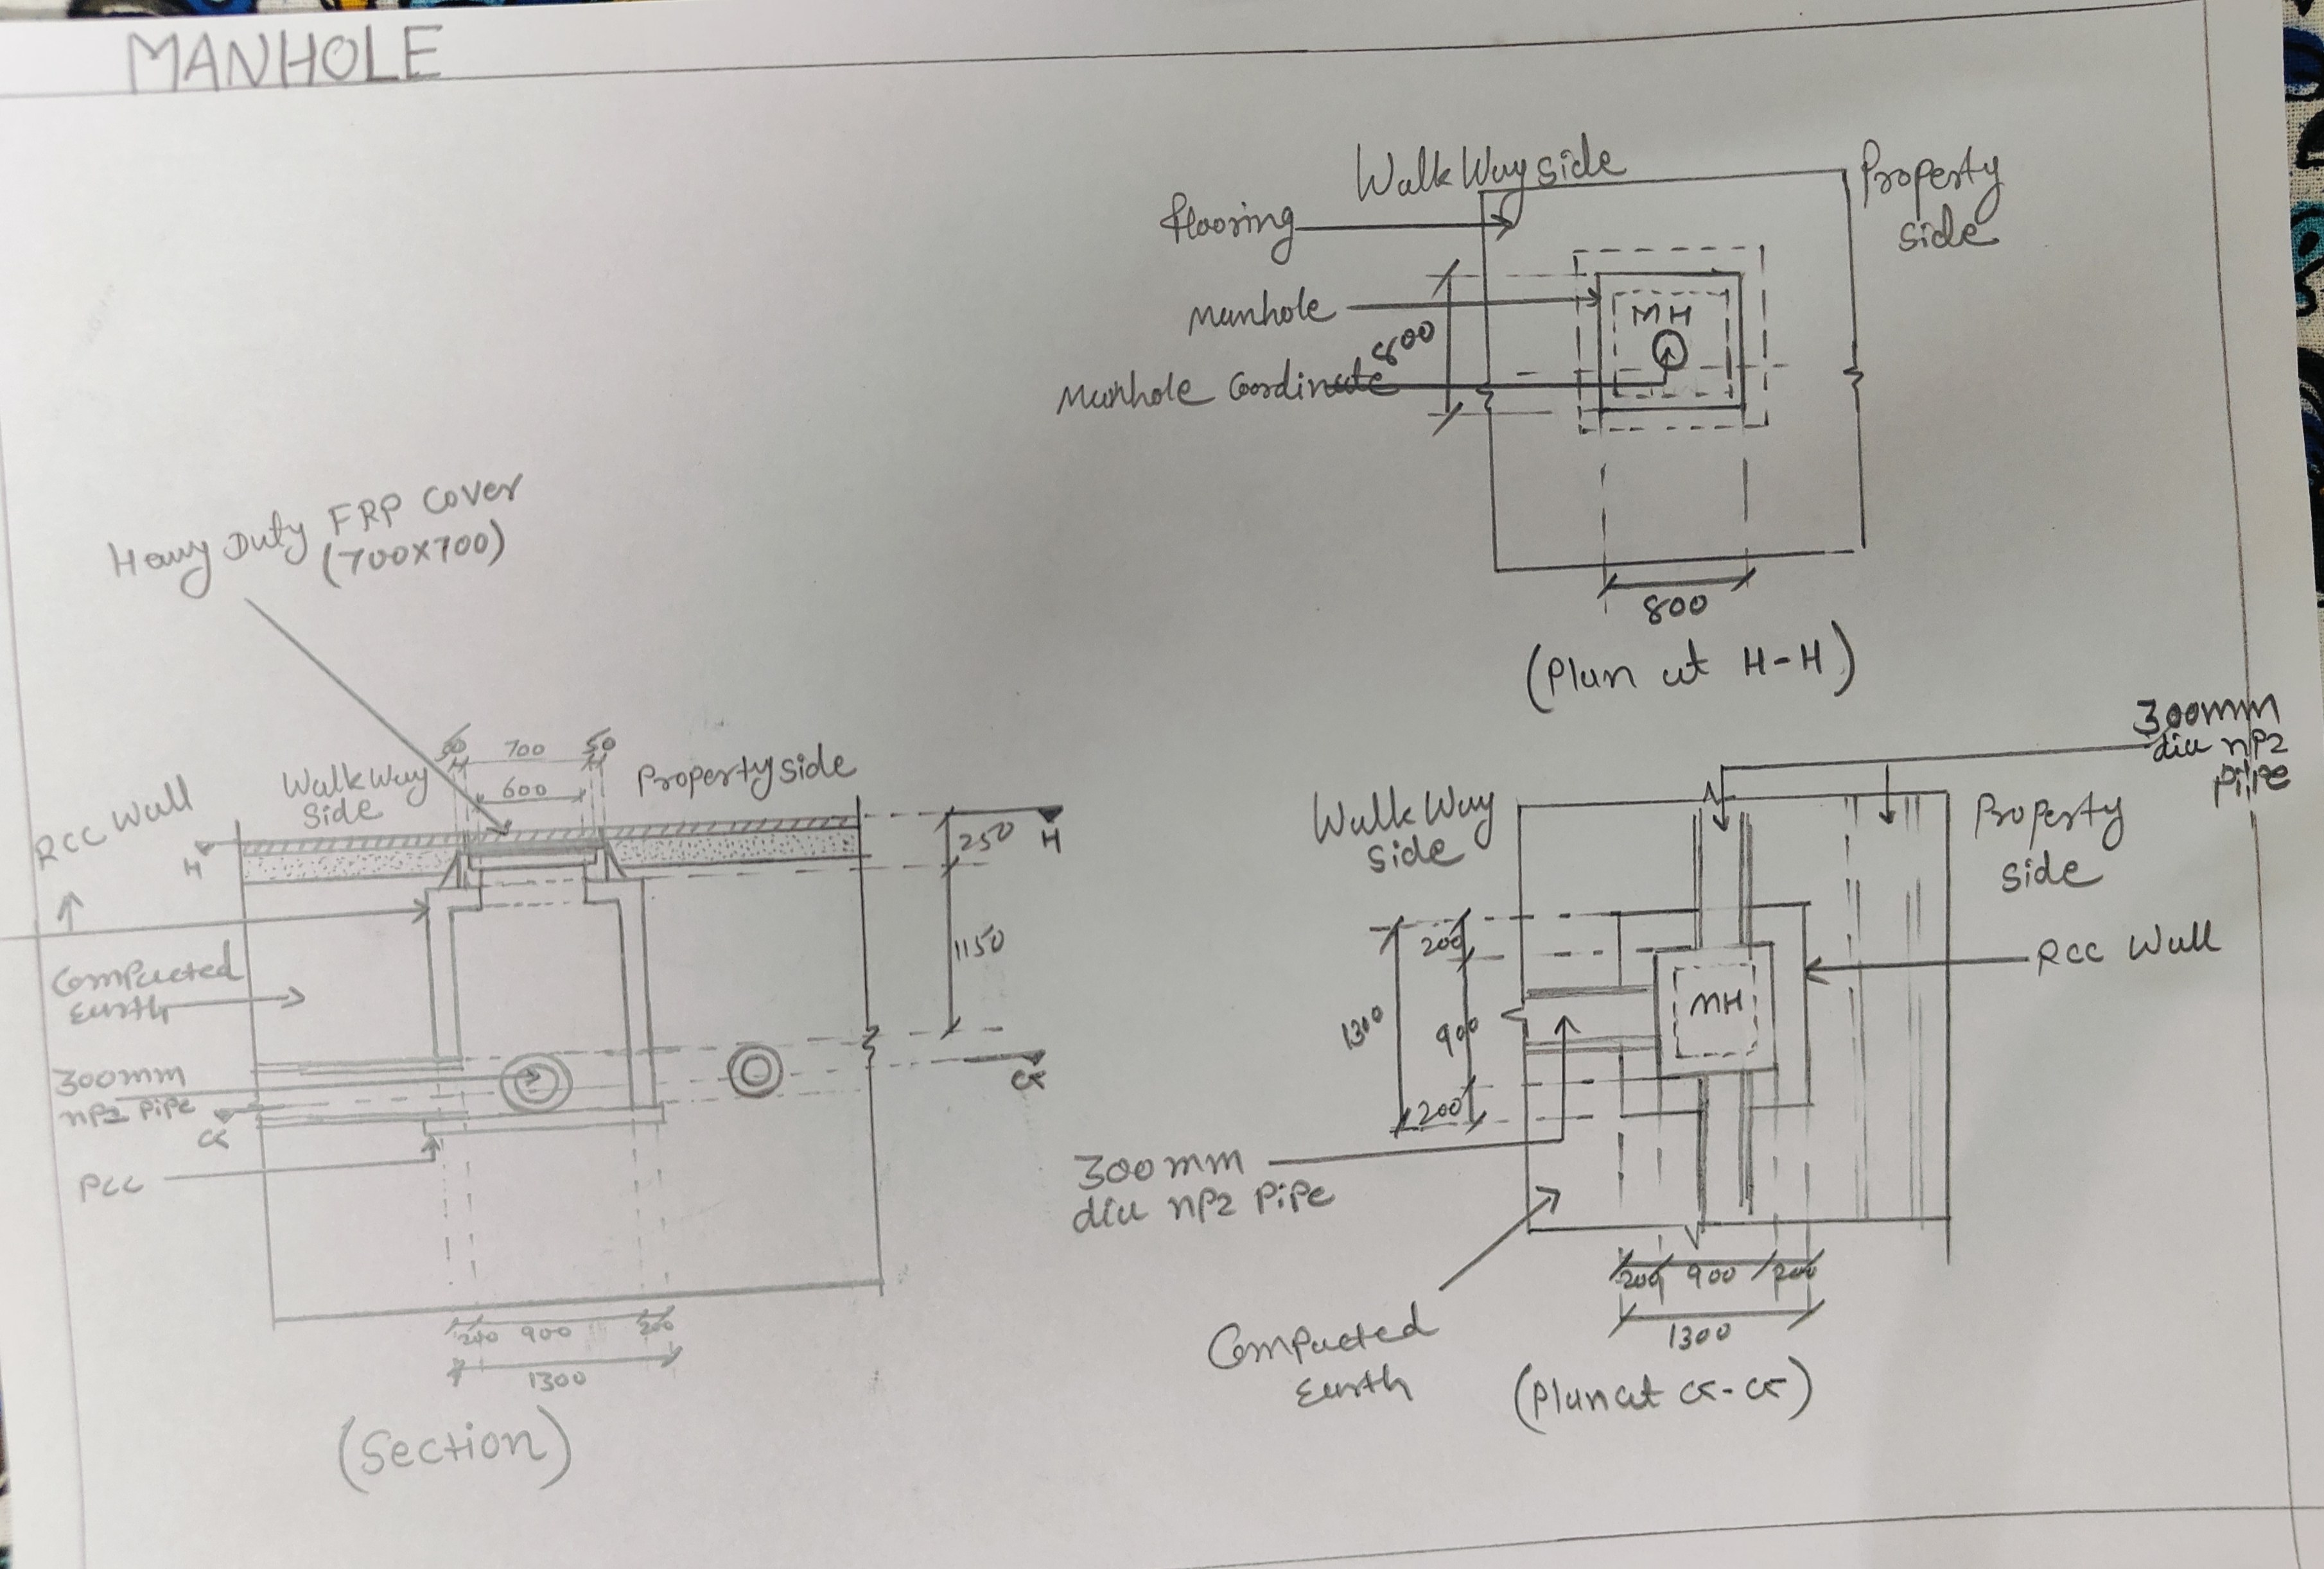 MANHOLE
Walk Way side
Property
side
flooring
Manhole
800
MH
Manhole Coordinate
800
(Plan at H-H)
Heavy Duty FRP Cover
(700x700)
50 700 50
600
Walk Way
Side
Property side
RCC Wall
H
H
250
1150
Compacted
Earth
300mm
NP2 Pipe
G
G
PCC
200 900 200
1300
(Section)
300mm
dia NP2
Pipe
Walk Way
Side
Property
Side
RCC Wall
200
900
200
1300
MH
300mm
dia NP2 Pipe
Compacted
Earth
200 900 200
1300
(Plan at G-G)